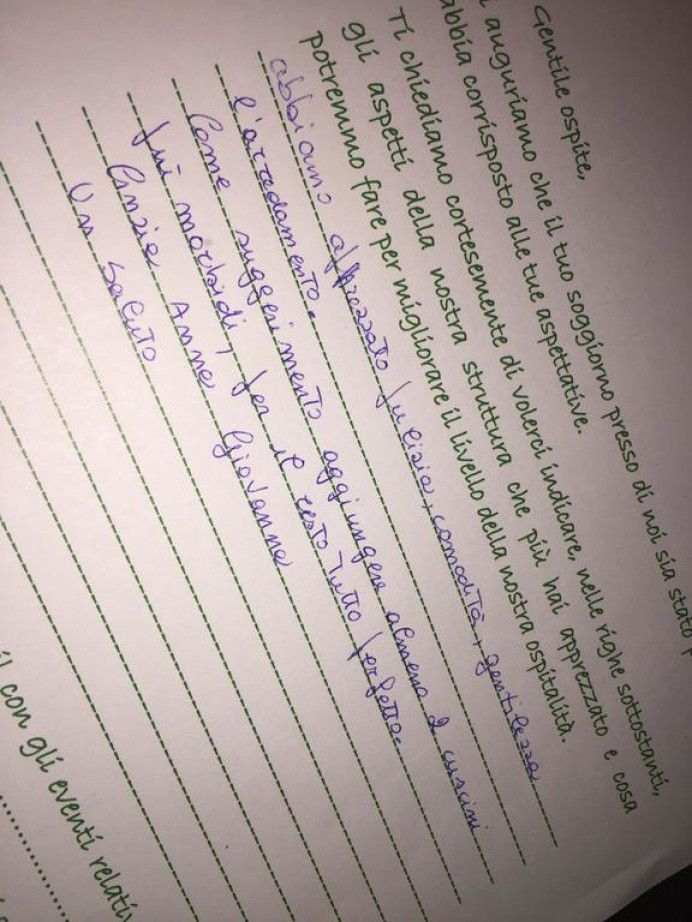 Gentile ospite,
i auguriamo che il tuo soggiorno presso di noi sia stato p
abbia corrisposto alle tue aspettative.
Ti chiediamo cortesemente di volerci indicare, nelle righe sottostanti,
gli aspetti della nostra struttura che più hai apprezzato e cosa
potremmo fare per migliorare il livello della nostra ospitalità.
abbiamo apprezzato pulizia, comodità, gentilezza
l'arredamento.
Come suggerimento aggiungere almeno 2 cuscini
più morbidi, per il resto tutto perfetto.
Cinzia Anna Giovanna
Un saluto
il con gli eventi relativ